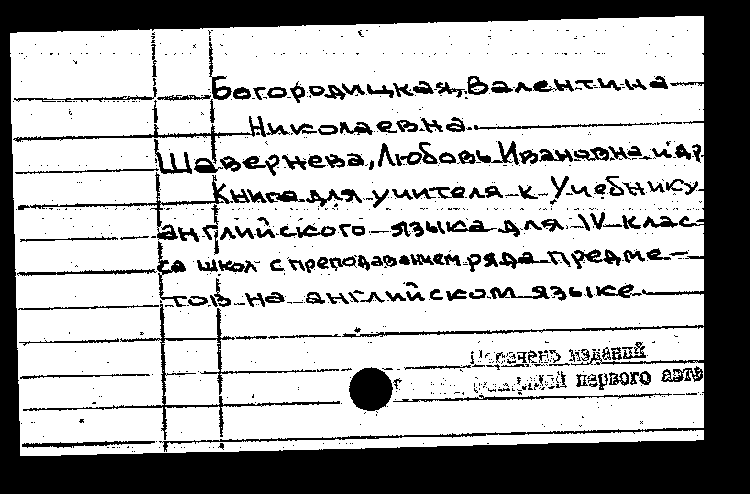 Богородицкая, Валентина
Николаевна.
Шавернева, Любовь Ивановна и др
Книга для учителя к Учебнику
английского языка для IV клас-
са школ с преподаванием ряда предме-
тов на английском языке.
Перечень изданий
первого авто